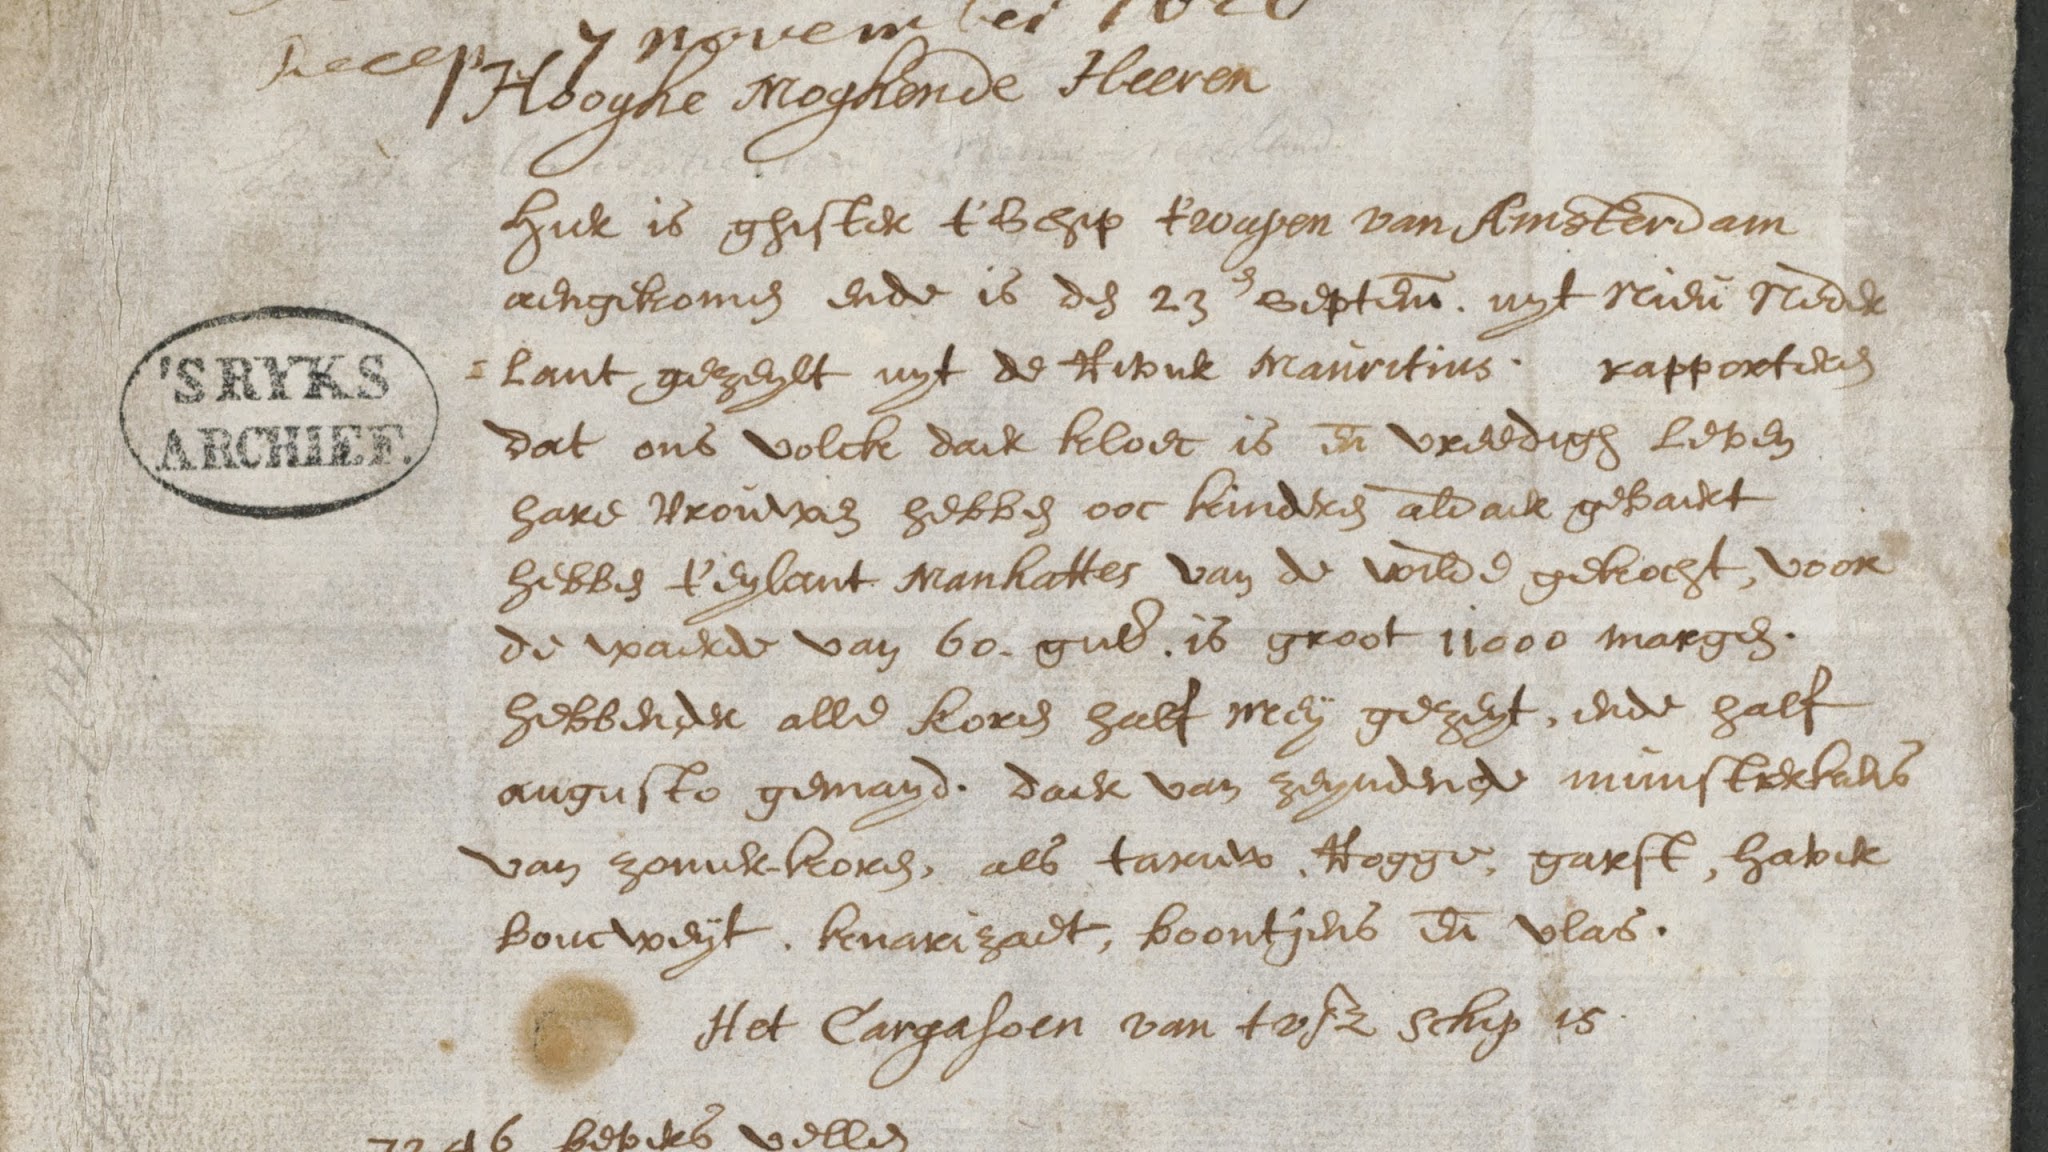 Recep. 7 november 1626
Hooghe Moghende Heeren
'S RYKS
ARCHIEF.
Hier is ghister t' Schip t'wapen van Amsterdam
aengekomen ende is den 23en septem. uyt Nieu Neder
=lant gezeylt uyt de Rivier Mauritius. rapporteren
dat ons volck daer kloec is en vreedigh leven
hare Vrouwen hebben ooc kinderen aldaer gebaert
hebben t'eylant Manhattes van de wilde gekocht, voor
de waerde van 60. guld. is groot 11000 morgen.
hebbende alle koren half Mey gezeyt, ende half
augusto gemayd. daer van zeyndende munsterkens
van zomer-koren, als taruw, Rogge, garst, haver
boucweyt, kenarizaet, boontjens en vlas.
Het Cargasoen van tvsz schip is
7246 bevers vellen